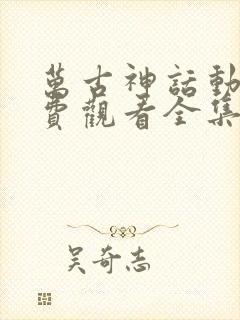 萬古神話動
費觀看全集
吳奇志